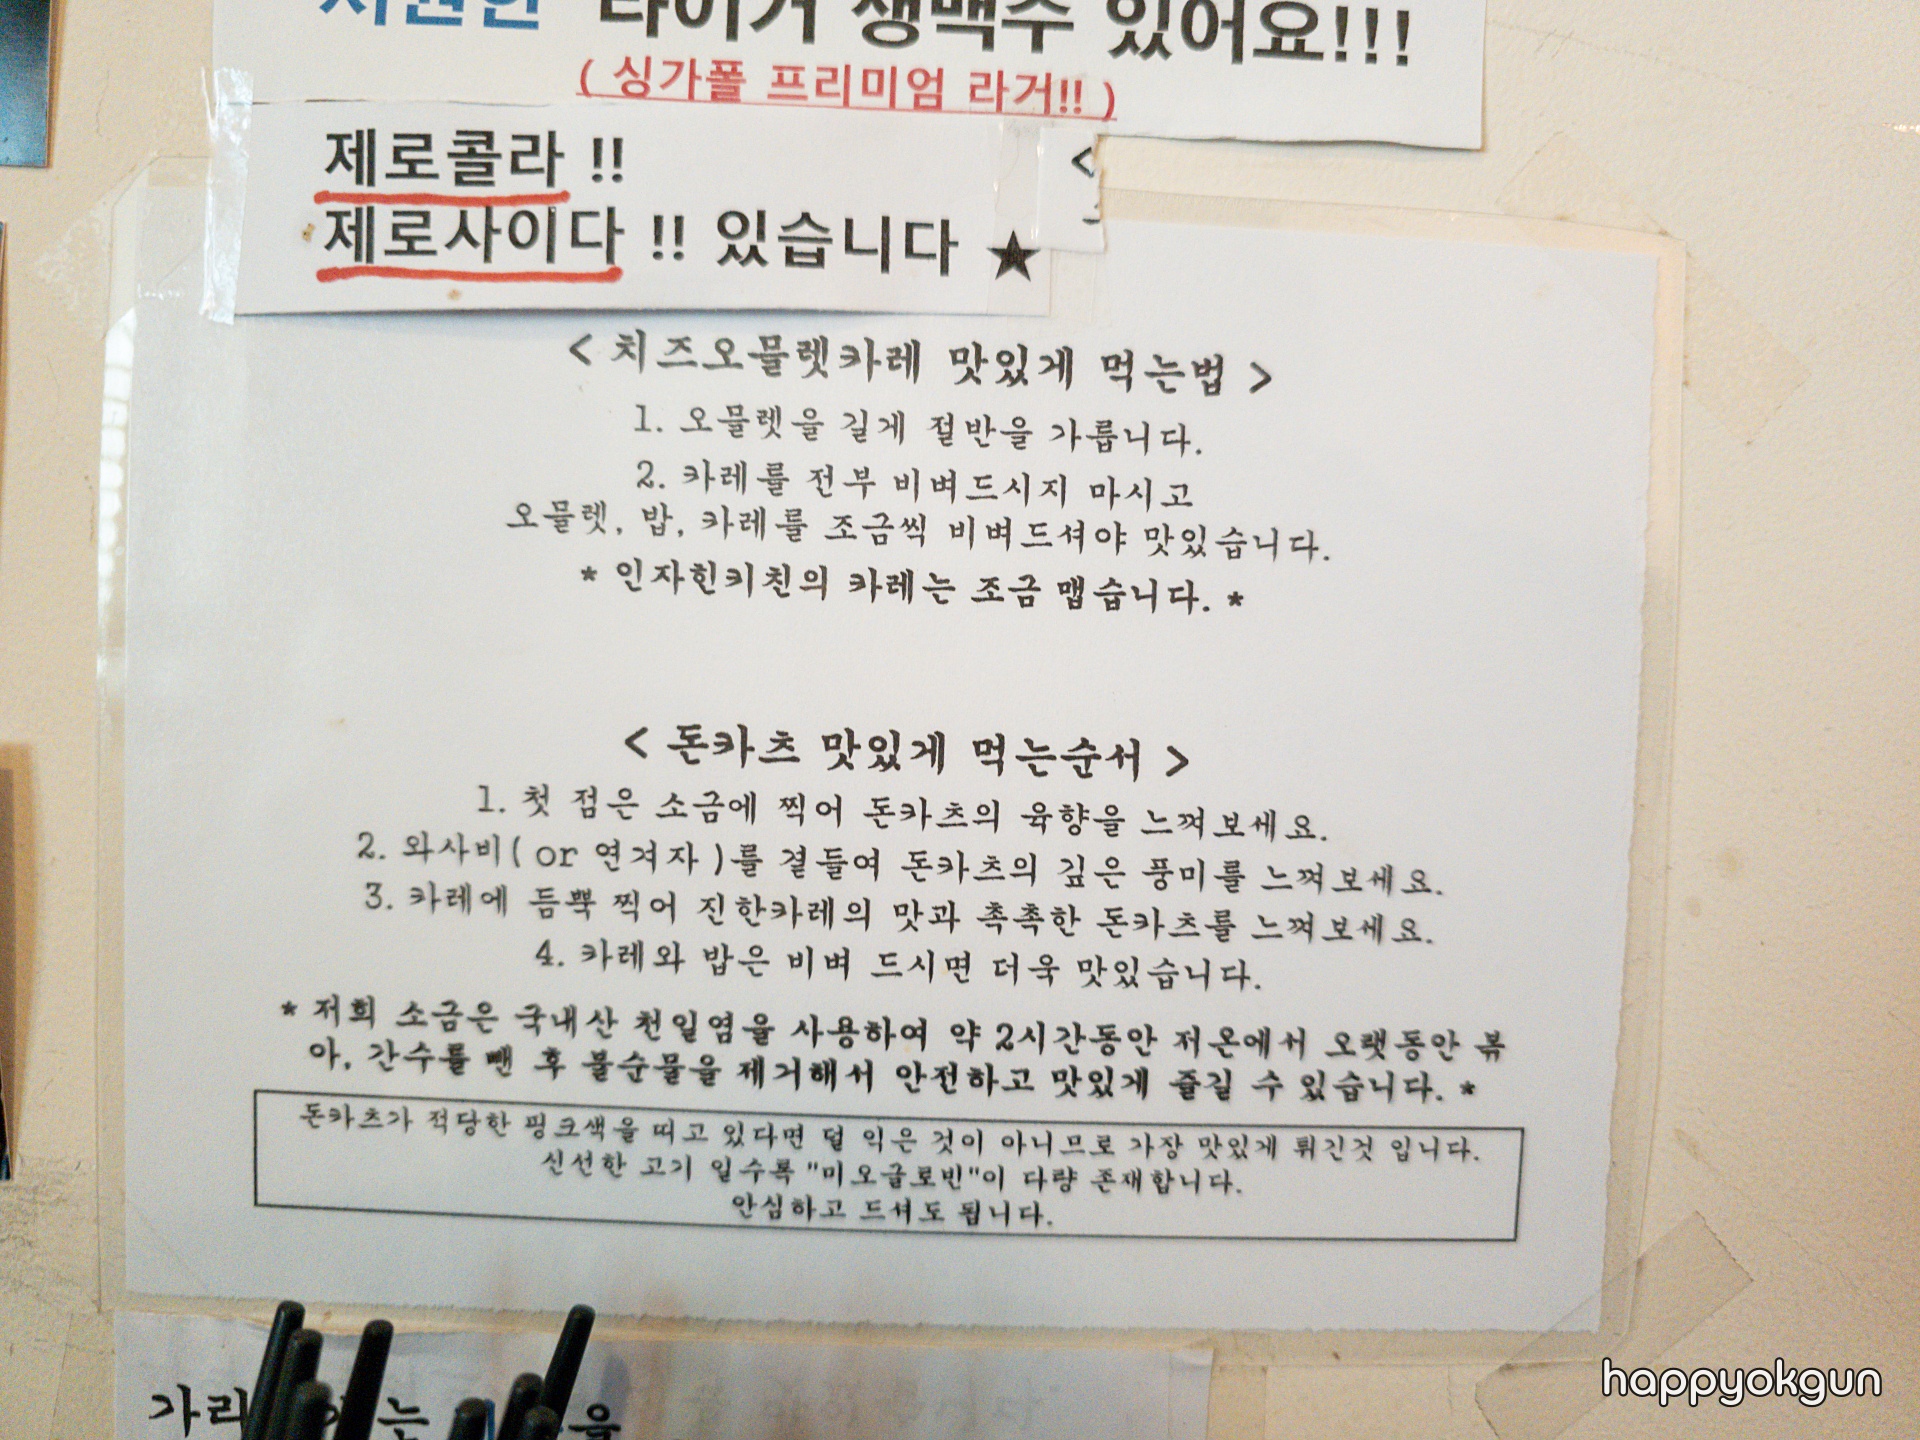 시원한 타이거 생맥주 있어요!!!
( 싱가폴 프리미엄 라거!! )
제로콜라 !!
제로사이다 !! 있습니다 ★
<
< 치즈오믈렛카레 맛있게 먹는법 >
1. 오믈렛을 길게 절반을 가릅니다.
2. 카레를 전부 비벼드시지 마시고
오믈렛, 밥, 카레를 조금씩 비벼드셔야 맛있습니다.
* 인자힌키친의 카레는 조금 맵습니다. *
< 돈카츠 맛있게 먹는순서 >
1. 첫 점은 소금에 찍어 돈카츠의 육향을 느껴보세요.
2. 와사비( or 연겨자 )를 곁들여 돈카츠의 깊은 풍미를 느껴보세요.
3. 카레에 듬뿍 찍어 진한카레의 맛과 촉촉한 돈카츠를 느껴보세요.
4. 카레와 밥은 비벼 드시면 더욱 맛있습니다.
* 저희 소금은 국내산 천일염을 사용하여 약 2시간동안 저온에서 오랫동안 볶
아, 간수를 뺀 후 불순물을 제거해서 안전하고 맛있게 즐길 수 있습니다. *
돈카츠가 적당한 핑크색을 띠고 있다면 덜 익은 것이 아니므로 가장 맛있게 튀긴것 입니다.
신선한 고기 일수록 "미오글로빈"이 다량 존재합니다.
안심하고 드셔도 됩니다.
happyokgun